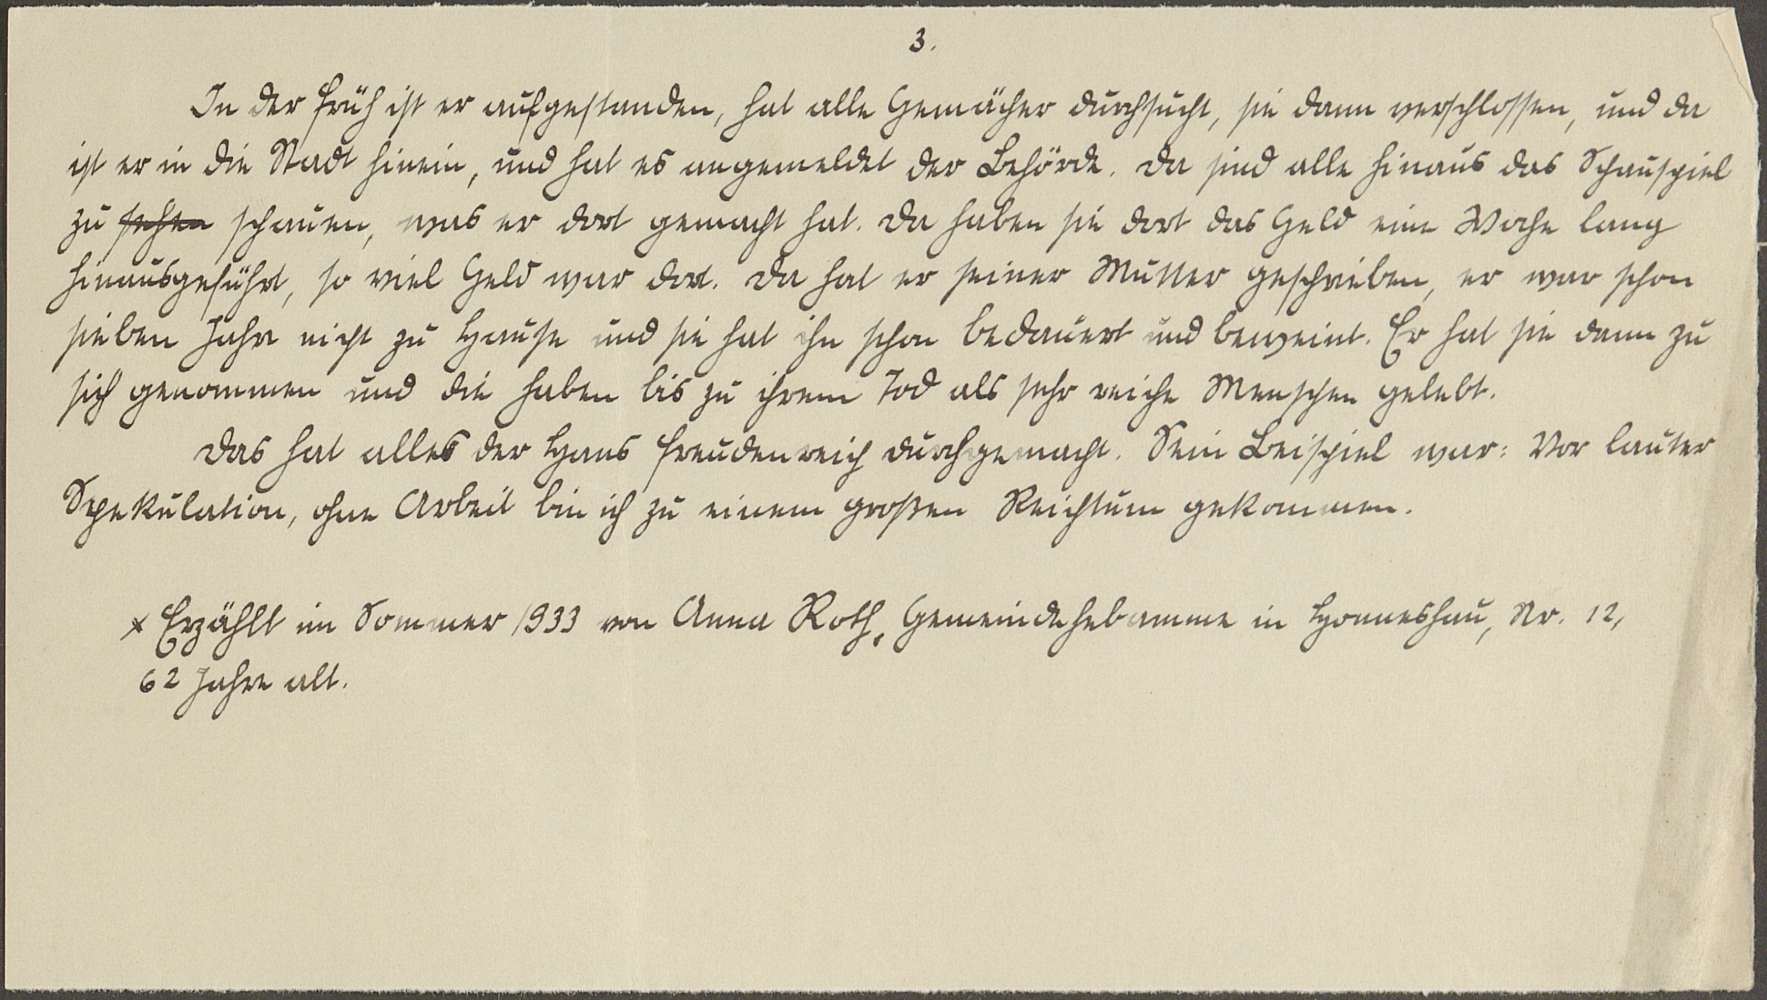 3.
In der Früh ist er aufgestanden, hat alle Gemächer durchsucht, sie dann verschlossen, und da
ist er in die Stadt hinein, und hat es angemeldet der Behörde. Da sind alle hinaus das Schauspiel
zu sehen schauen, was er dort gemacht hat. Da haben sie dort das Geld eine Woche lang
hinausgeführt, so viel Geld war dort. Da hat er seiner Mutter geschrieben, er war schon
sieben Jahre nicht zu Hause und sie hat ihn schon bedauert und beweint. Er hat sie dann zu
sich genommen und die haben bis zu ihrem Tod als sehr reiche Menschen gelebt.
Das hat alles der Hans Freudenreich durchgemacht. Sein Beispiel war: Vor lauter
Spekulation, ohne Arbeit bin ich zu einem großen Reichtum gekommen.
x Erzählt im Sommer 1933 von Anna Roth, Gemeindehebamme in Honneshau, Nr. 12,
62 Jahre alt.